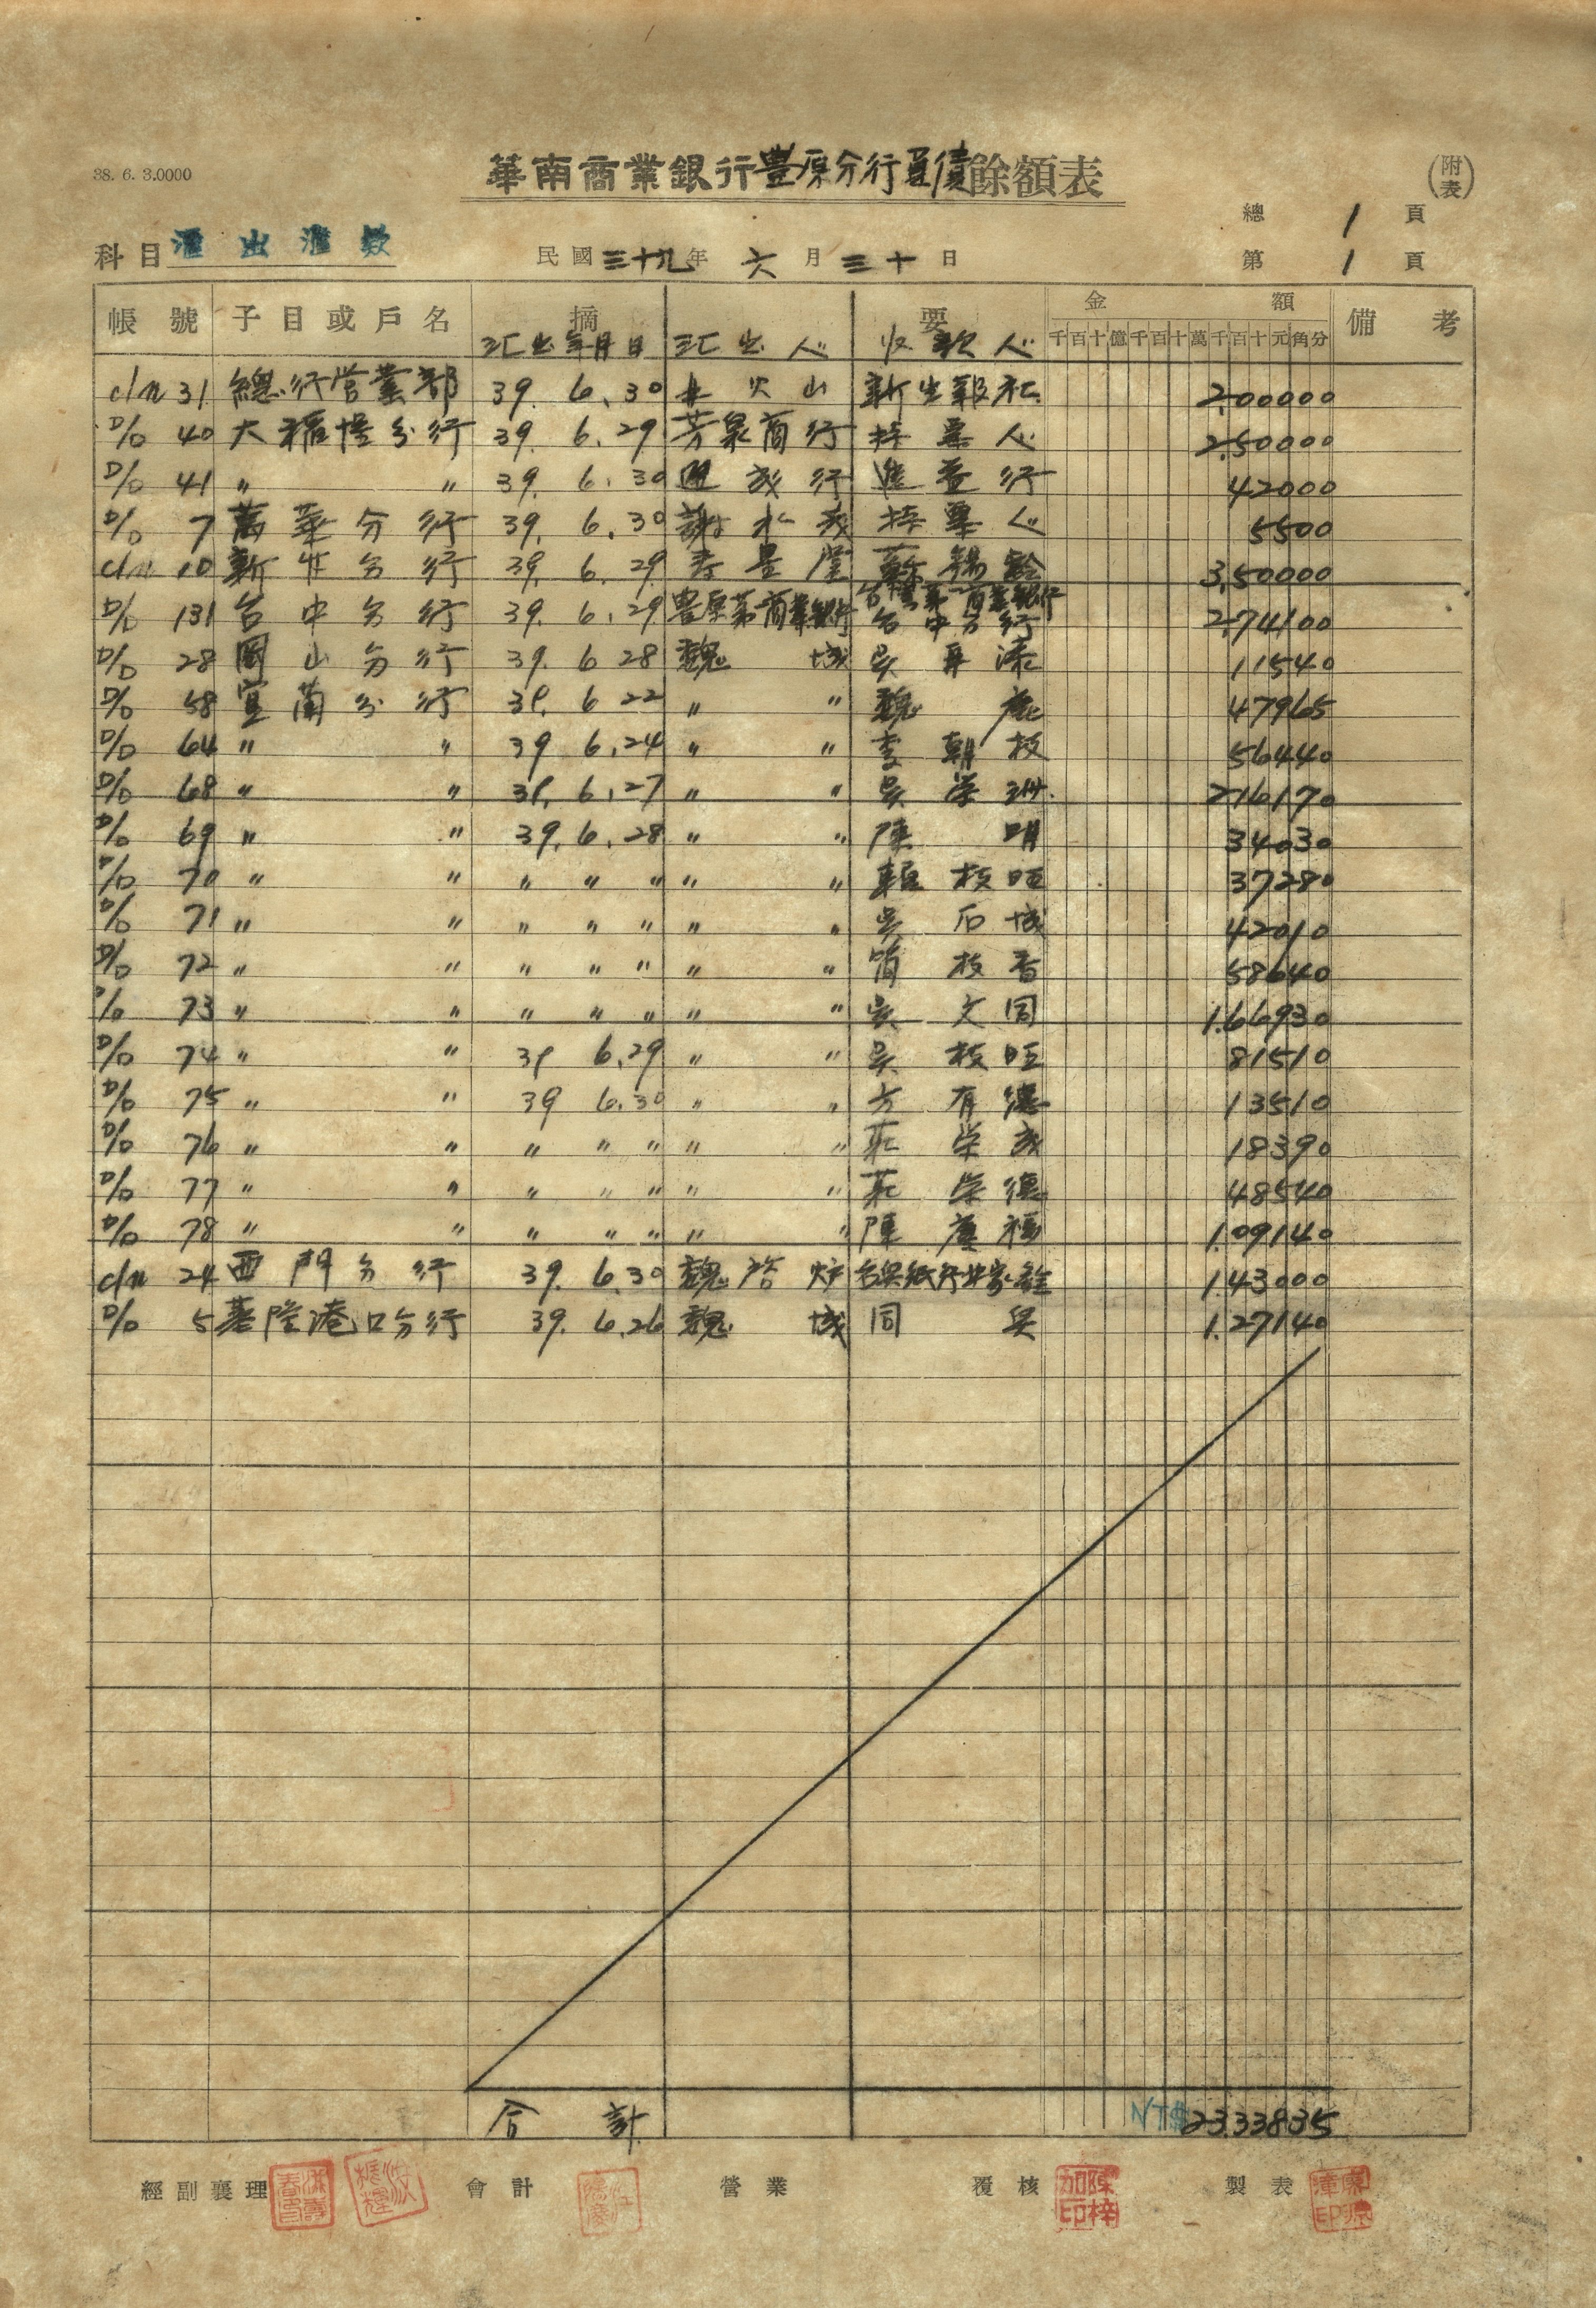 38. 6. 3.0000
華南商業銀行豊原分行負債餘額表
(附表)
總 1 頁
科目 滙出滙款 民國三十九年 六月三十日 第 1 頁
帳號 子目或戶名 摘要 金額 備考
汇出年月日 汇出人 收款人 千百十億千百十萬千百十元角分
c/n 31 總行營業部 39. 6. 30 火山 新生報社 2,00000
D/D 40 大稻埕分行 39. 6. 29 芳泉商行 持票人 2,50000
D/D 41 〃 〃 39. 6. 30 成行 進益行 42000
D/D 7 萬華分行 39. 6. 30 謝水成 持票人 5500
c/n 10 新竹分行 39. 6. 29 堂 蘇錫銓 3,50000
D/D 131 台中分行 39. 6. 29 豊原第商業銀行 台灣第一商業銀行台中分行 2,74100
D/D 28 岡山分行 39. 6 28 魏城 吳再添 11540
D/D 58 宜蘭分行 39. 6 22 〃 〃 魏 47965
D/D 64 〃 〃 39 6.24 〃 〃 李朝枝 56440
D/D 68 〃 〃 39. 6.27 〃 〃 吳崇 216170
D/D 69 〃 〃 39. 6. 28 〃 〃 陳 34030
D/D 70 〃 〃 〃 〃 〃 〃 〃 賴枝旺 37280
D/D 71 〃 〃 〃 〃 〃 〃 〃 吳石城 42010
D/D 72 〃 〃 〃 〃 〃 〃 〃 簡枝香 58640
D/D 73 〃 〃 〃 〃 〃 〃 〃 吳文同 1.66930
D/D 74 〃 〃 39 6.29 〃 〃 吳枝旺 81510
D/D 75 〃 〃 39 6.30 〃 〃 方有德 13510
D/D 76 〃 〃 〃 〃 〃 〃 〃 莊荣成 18390
D/D 77 〃 〃 〃 〃 〃 〃 〃 莊荣德 48540
D/D 78 〃 〃 〃 〃 〃 〃 〃 陳福 1.09140
c/n 24 西門分行 39. 6.30 魏啓炉 1.43000
D/D 5 基隆港口分行 39. 6.26 魏城 同吳 1.27140
合計 NT$23.33835
經副襄理 會計 營業 覆核 陳梓加印 製表